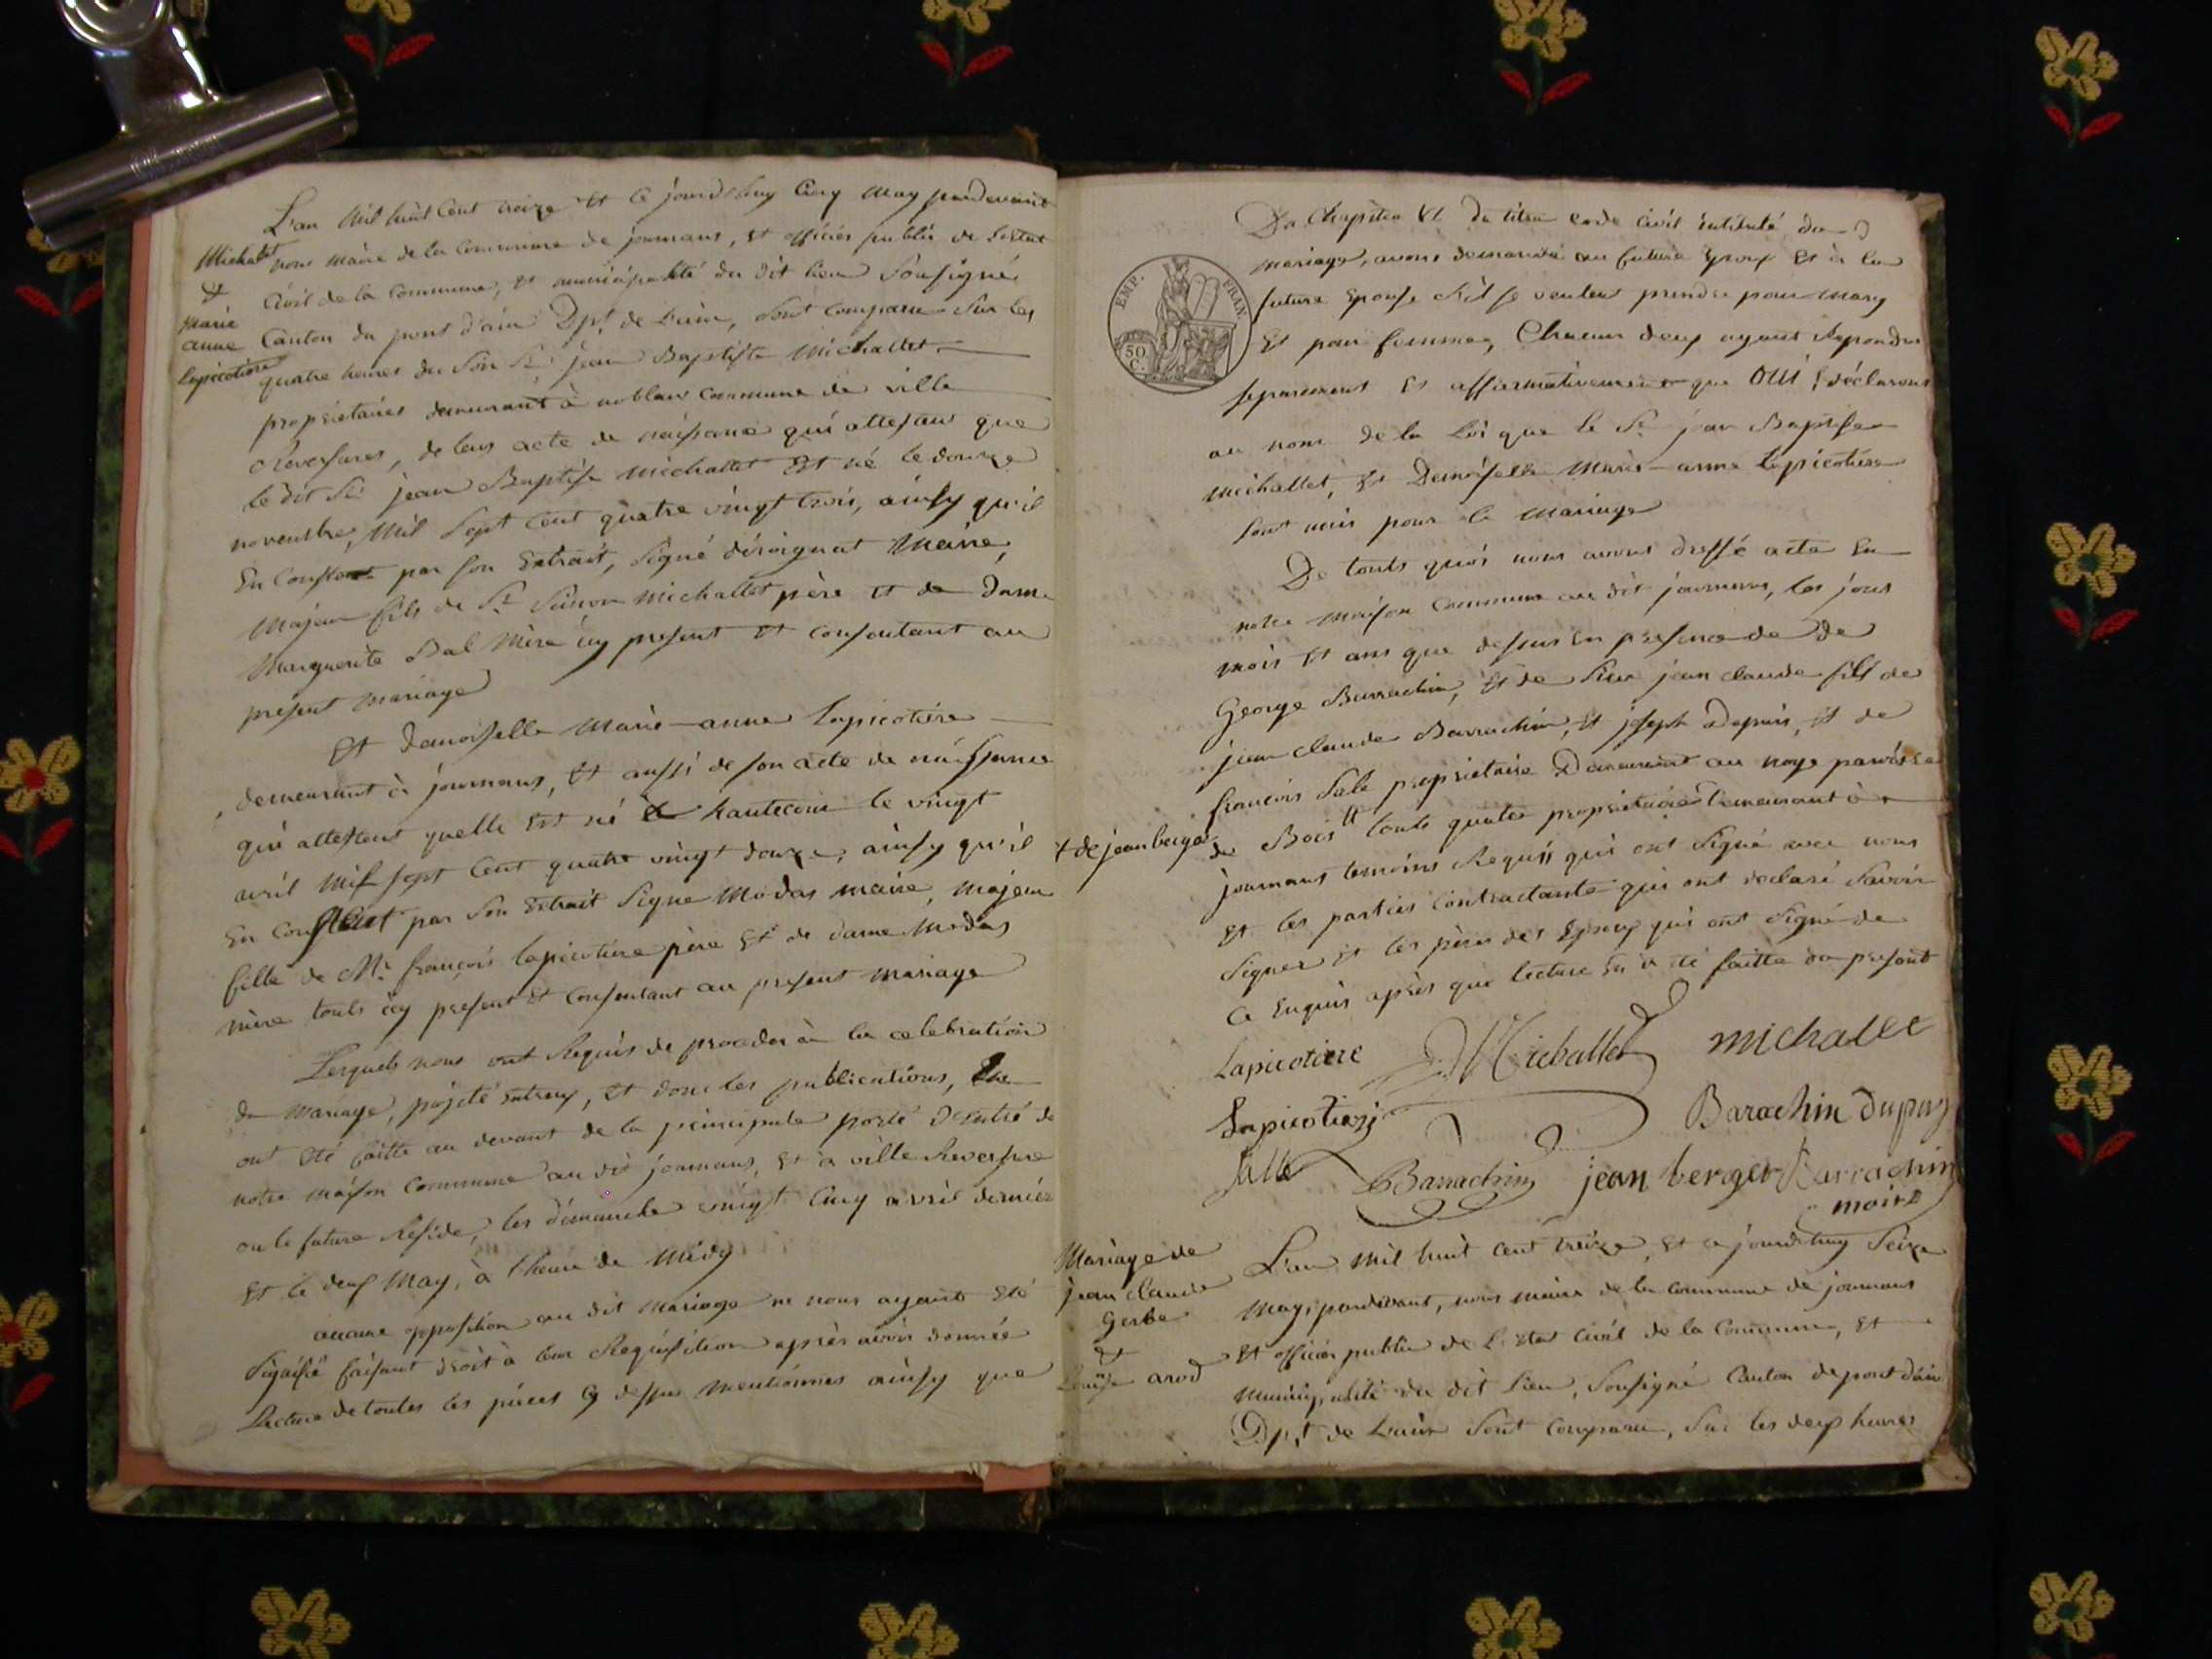 L'an mil huit cent treize et ce jourdhuy cinq may pardevant
Michalet
&
marie
anne
lapicotiere
nous maire de la commune de journans, et officier public de l'estat
civil de la commune, et municipalité du dit lieu soussigné
Canton du pont d'ain Dpt de l'ain, sont comparu sur les
quatre heures du soir Sr jean Baptiste Michallet
propriétaires demeurant à noblans commune de ville
Reversures, de leurs acte de naissance qui attestent que
le dit Sr jean Baptiste Michallet est né le douze
novembre, mil sept cent quatre vingt trois, ainsy qu'il
En constant par son Extrait, signé maire,
majeur fils de Sr Simon Michallet père et de dame
Marguerite Bal mère icy present et consentant au
present mariage
Et demoiselle Marie-anne lapicotiere
demeurant à journans, et aussi de son acte de naissance
qui attestent quelle est né à hautecour le vingt
avril mil sept cent quatre vingt douze, ainsy qu'il
En constant par son Extrait signe Modas maire, majeur
fille de Mr françois lapicotiere père et de dame Modas
mère touts icy present et consentant au present mariage
Lesquels nous ont Requis de proceder à la celebration
du mariage, projeté entreux, et dont les publications,
ont été faitte au devant de la principale porte d'entré de
notre maison commune au dit journans, et à ville Reversure
ou le future Reside, les dimanche vingt cinq avril dernier
et le deux may, à l'heure de midy
aucune opposition au dit mariage ne nous ayant été
signifié faisant droit à leur Requisition après avoir donnée
Lecture de toutes les pièces cy dessus mentionnés ainsy que
Du Chapitre VI du titre code civil intitulé du
mariage, avons demandé au future Epoux et à la
future epouse s'il se veulent prendre pour mary
EMP. FRAN.
50
C.
Et pour femme, Chacun deux ayant Repondu
separement et affirmativement que OUI, déclarons
au nom de la Loi que le Sr jean Baptiste
michallet, et Demoiselle Marie-anne lapicotiere
sont unis pour le mariage
De touts quoi nous avons dressé acte en
notre maison commune au dit journans, les jour
mois et ans que dessus en presence de de
George Barrachin, et de Sieur jean claude fils de
jean claude Barrachin, et joseph Dupuis, et de
françois Sale propriétaire Demeurant au noye paroisse
+ de jean berger
de Bois touts quatre propriétaires demeurant à
journans temoins Requis qui ont signé avec nous
et les parties contractante qui ont declaré savoir
signer et les pères des Epoux qui ont signé de
ce enquis après que lecture en a été faitte du present
Lapicotiere Michallet michalet
Lapicotiere Barachin dupuy
Salle Barrachin jean berger Barrachin
maire
Mariage de
jean claude
Gerbe
&
arod
L'an mil huit cent treize, et ce jourdhuy Seize
may, pardevant, nous maire de la commune de journans
et officier public de l'etat civil de la commune, et
municipalité du dit Lieu, soussigné Canton de pont d'ain
Dpt de L'ain sont comparu, sur les deux heures